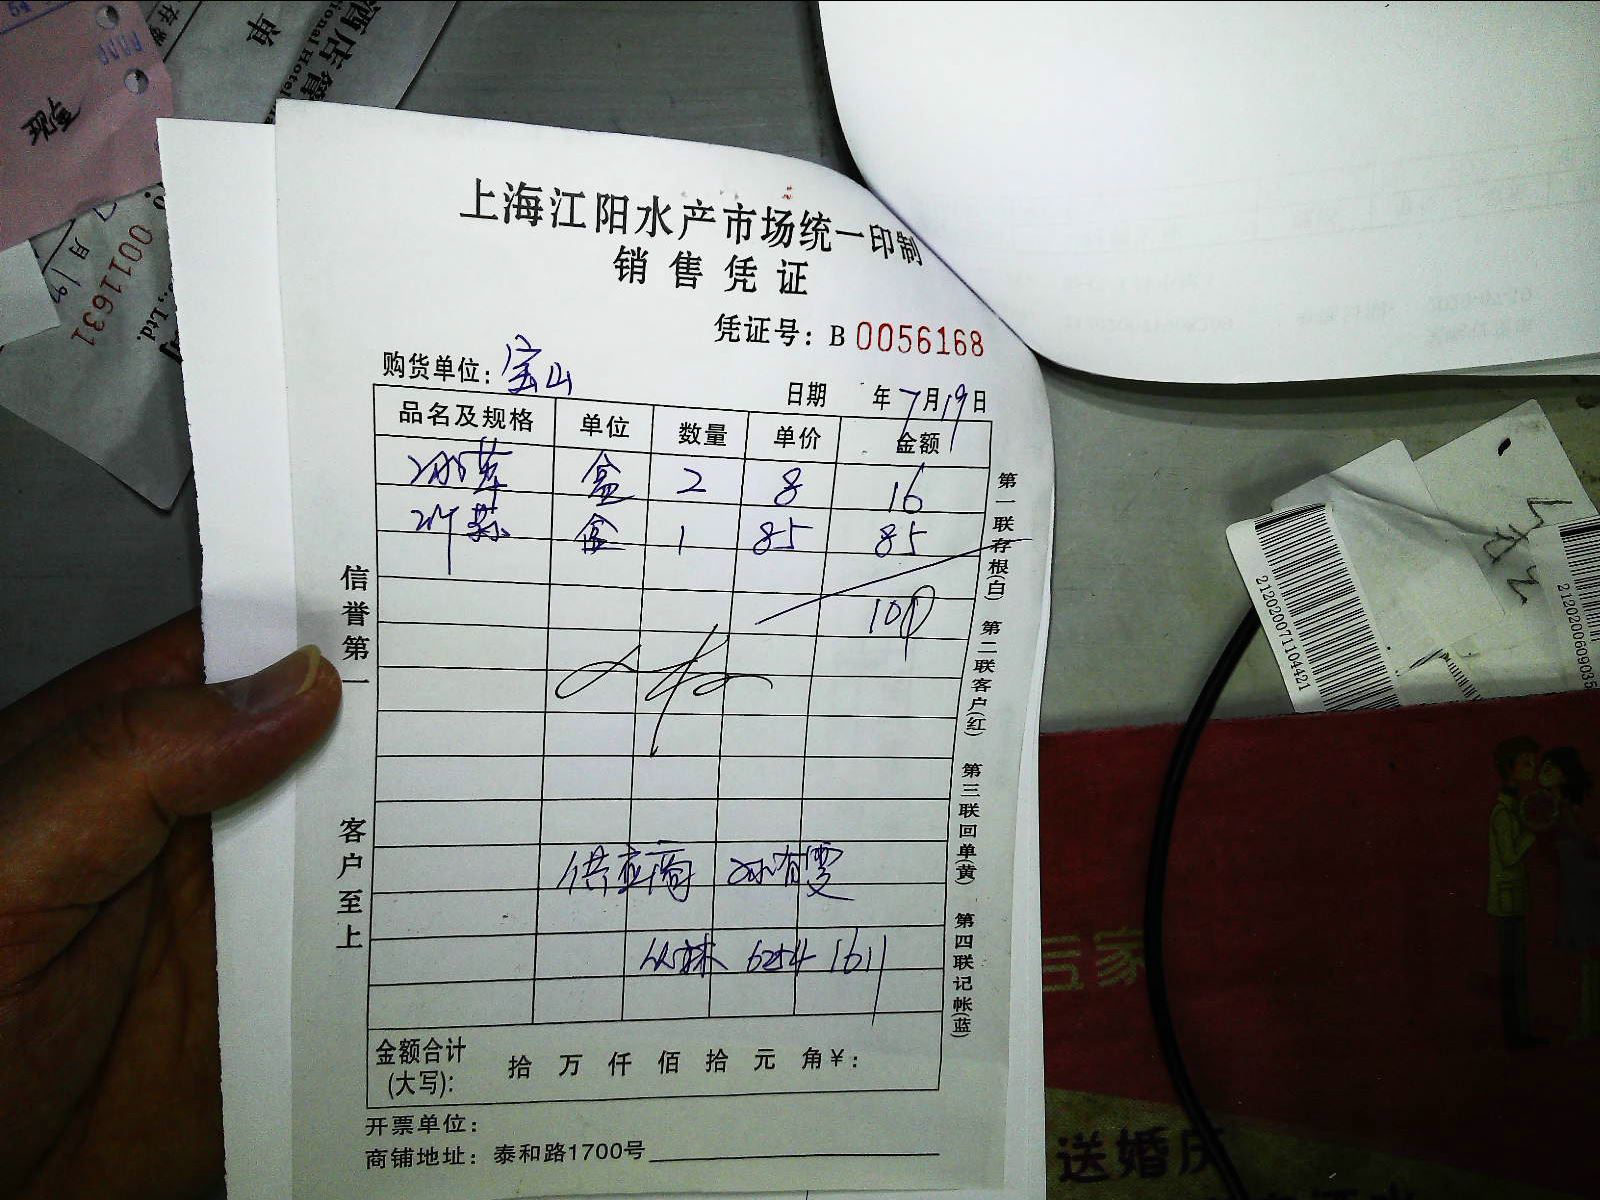 上海江阳水产市场统一印制
销售凭证
凭证号：B 0056168
购货单位：宝山
日期 年7月19日
品名及规格 单位 数量 单价 金额
盒 2 8 16
盒 1 85 85
101
供应商
6254 1611
金额合计 拾 万 仟 佰 拾 元 角￥：
(大写):
开票单位：
商铺地址：泰和路1700号
信誉第一
客户至上
第一联存根(白)
第二联客户(红)
第三联回单(黄)
第四联记帐(蓝)
0011631
., Ltd.
单
酒店管
ional Hotel
月19
2120200711044421
2120200609035
送婚庆